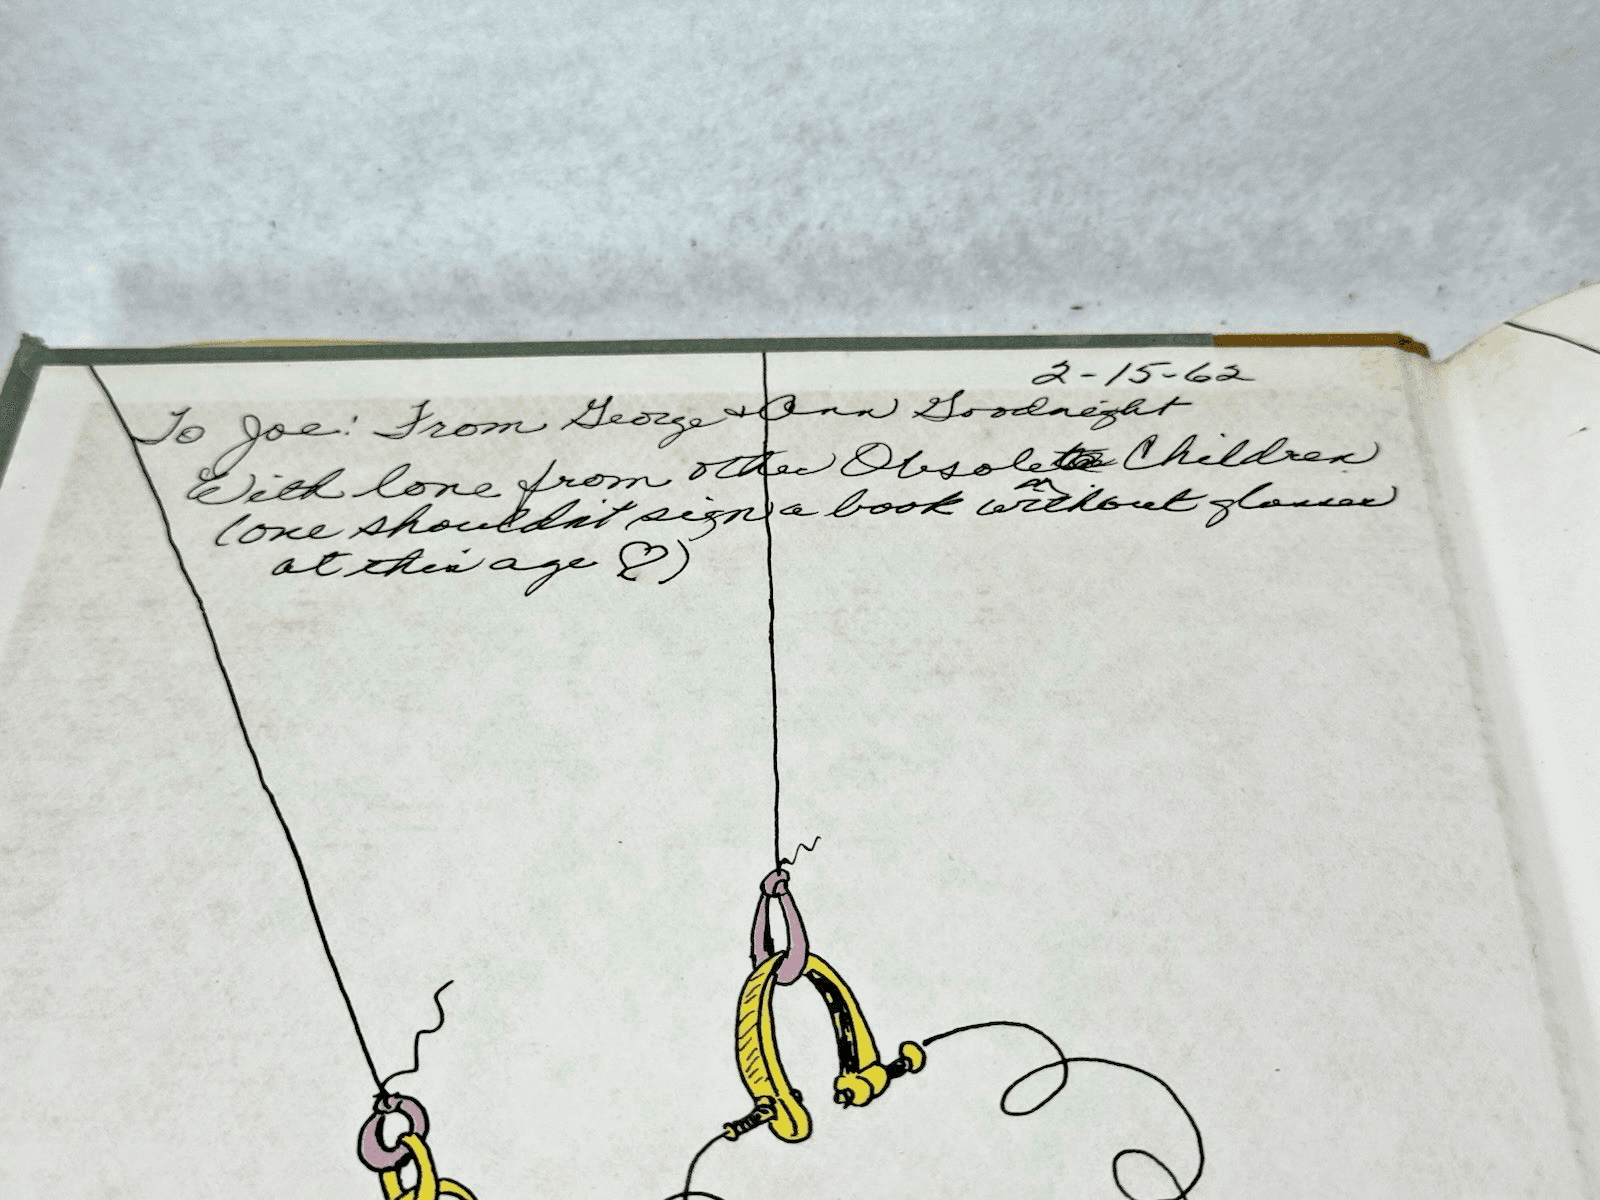 2-15-62
To Joe: From George & Ann Goodnight
With love from other Obsolete Children
(one shouldn't sign a book without glasses
at this age ♡)